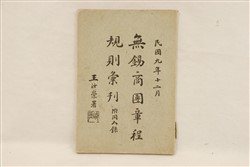 民國九年十二月
無錫商團章程
規則彙刊附同人錄